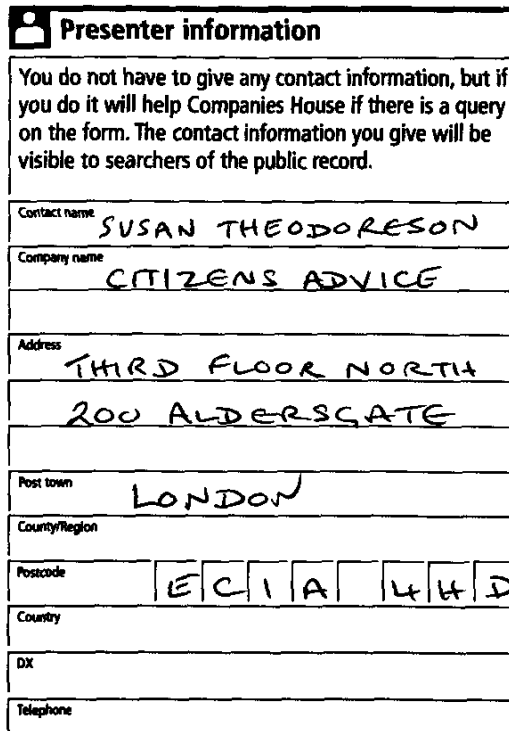 Presenter information
You do not have to give any contact information, but if
you do it will help Companies House if there is a query
on the form. The contact information you give will be
visible to searchers of the public record.
Contact name SUSAN THEODORESON
Company name CITIZENS ADVICE
Address THIRD FLOOR NORTH
200 ALDERSGATE
Post town LONDON
County/Region
Postcode EC1A 4HD
Country
DX
Telephone